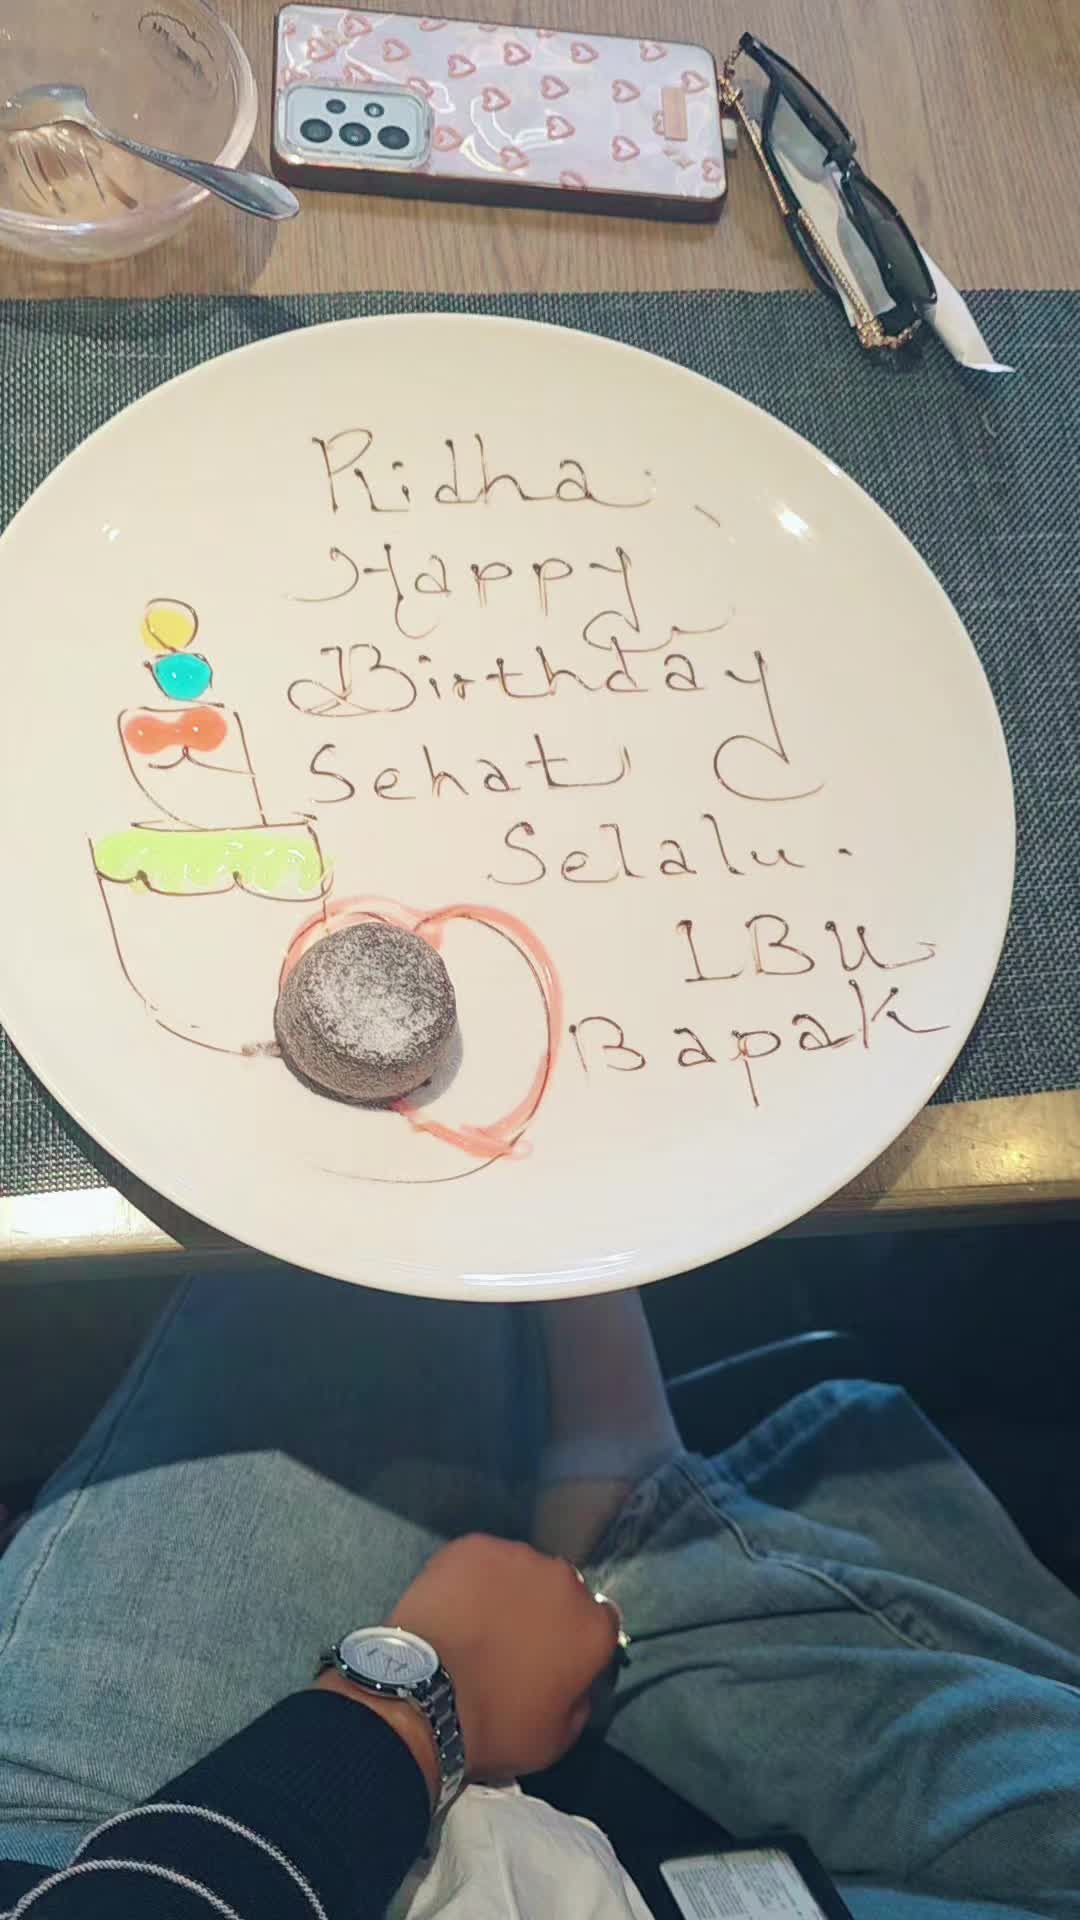 Ridha,
Happy
Birthday
Sehat
Selalu.
IBU
Bapak